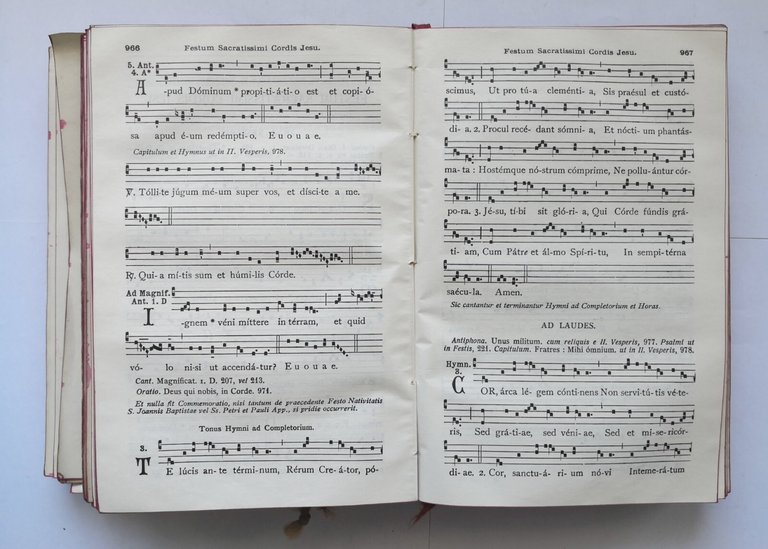 966 Festum Sacratissimi Cordis Jesu.
5. Ant.
4. A*
A-pud Dóminum * propi-ti-á-ti-o est et copi-ó-
sa apud é-um redémpti-o. E u o u a e.
Capitulum et Hymnus ut in II. Vesperis, 978.
℣. Tólli-te júgum mé-um super vos, et dísci-te a me.
℟. Qui-a mí-tis sum et húmi-lis Córde.
Ad Magnif.
Ant. 1. D
I-gnem * véni míttere in térram, et quid
vó- lo ni-si ut accendá-tur? E u o u a e.
Cant. Magníficat. 1. D. 207, vel 213.
Oratio. Deus qui nobis, in Corde. 971.
Et nulla fit Commemoratio, nisi tantum de praecedente Festo Nativitatis
S. Joannis Baptistae vel Ss. Petri et Pauli App., si pridie occurrerit.
Tonus Hymni ad Completorium.
3.
TE lúcis an-te térmi-num, Rérum Cre-á-tor, pó-
Festum Sacratissimi Cordis Jesu. 967
scimus, Ut pro tú-a cleménti-a, Sis praésul et custó-
di-a. 2. Procul recé-dant sómni-a, Et nócti-um phantás-
ma-ta : Hostémque nó-strum cómprime, Ne pollu-ántur cór-
pora. 3. Jé-su, tí-bi sit gló-ri-a, Qui Córde fúndis grá-
ti-am, Cum Pátre et ál-mo Spí-ri-tu, In sempi-térna
saécu-la. Amen.
Sic cantantur et terminantur Hymni ad Completorium et Horas.
AD LAUDES.
Antiphona. Unus militum. cum reliquis e II. Vesperis, 977. Psalmi ut
in Festis, 221. Capitulum. Fratres : Mihi ómnium. ut in II. Vesperis, 978.
Hymn.
8.
COR, árca lé-gem cónti-nens Non servi-tú-tis véte-
ris, Sed grá-ti-ae, sed véni-ae, Sed et mi-se-ricór-
di-ae. 2. Cor, sanctu-á-ri-um nó-vi Inteme-rá-tum